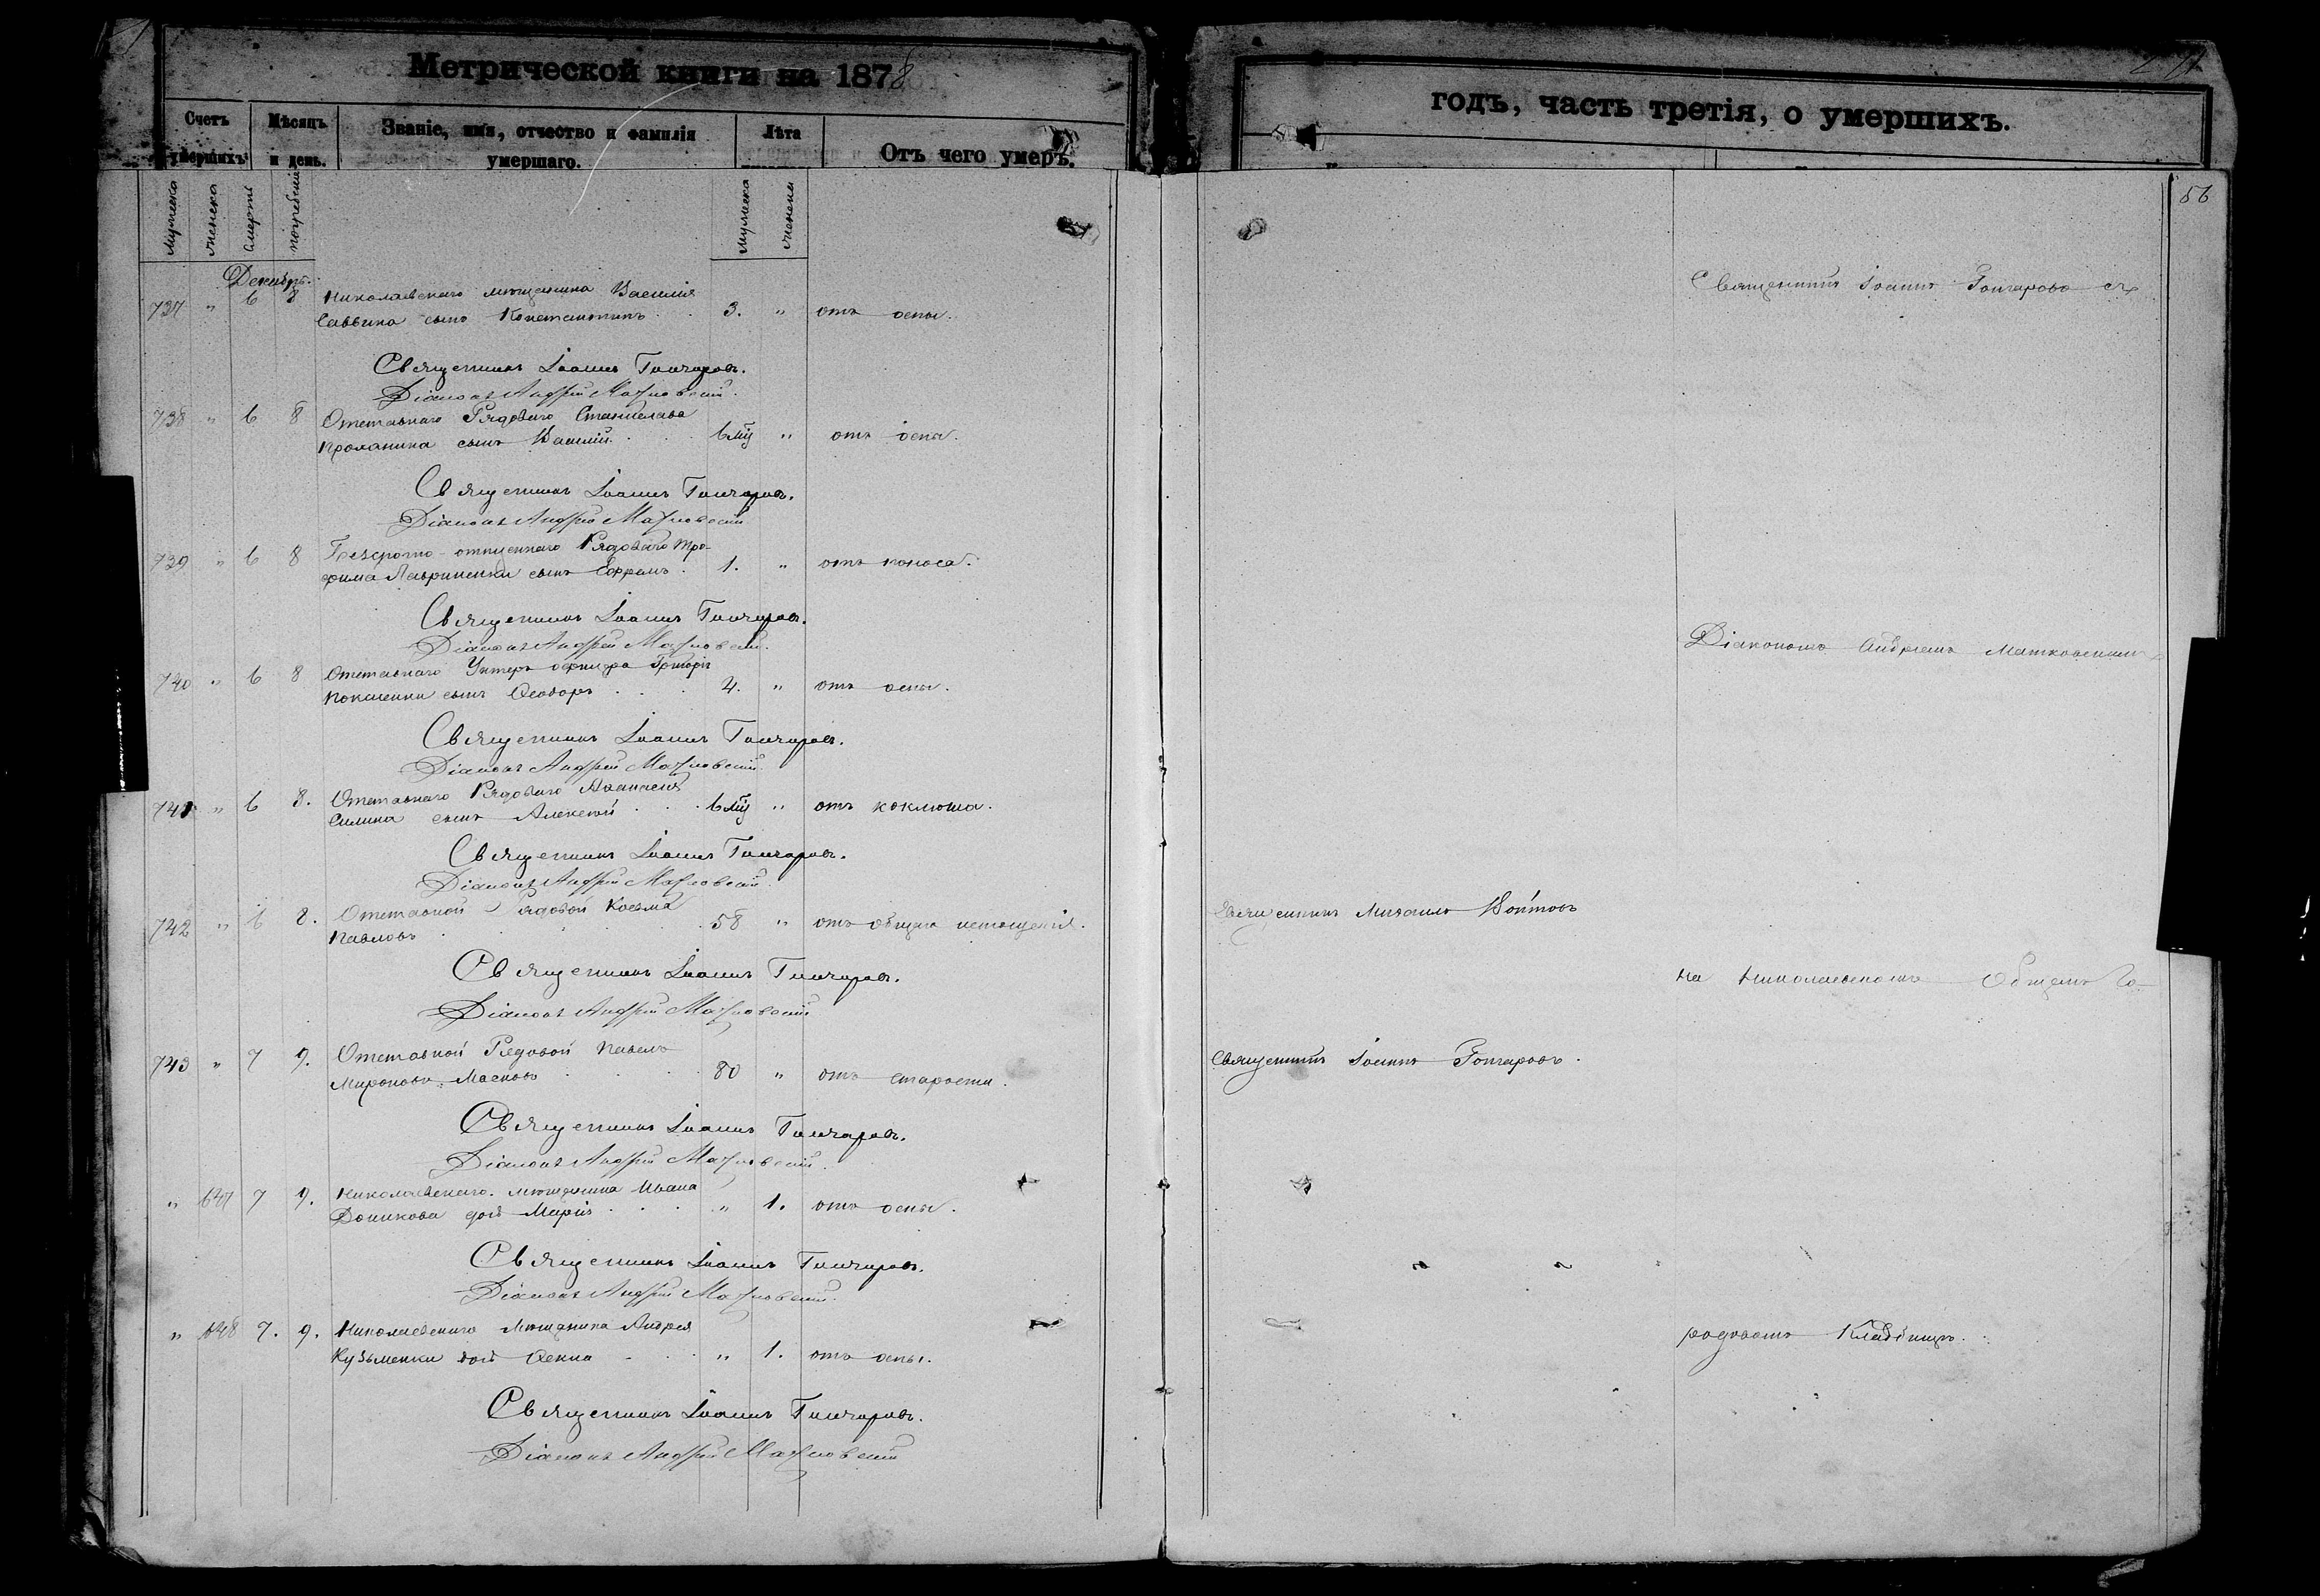 Метрической книги на 1878
Счетъ умершихъ
Мѣсяцъ и день.
Званіе, имя, отчество и фамилія умершаго.
Лѣта
Отъ чего умеръ.
Мужеска
женска
Смерти
погребенія
мужеска
женска
Декабрь.
737 " 6 8 Николаевскаго мѣщанина Василія
Саввина сынъ Константинъ . . 3. " отъ оспы.
Священникъ Іоаннъ Гончаровъ.
Діаконъ Андрей Матковскій.
738 " 6 8 Отставнаго Рядоваго Станислава
сынъ Василій. . . 6 мц " отъ оспы.
Священникъ Іоаннъ Гончаровъ.
Діаконъ Андрей Матковскій
739 " 6 8 Безсрочно-отпускнаго Рядоваго Тро-
фима Лавриненки сынъ Ефремъ . 1. " отъ поноса.
Священникъ Іоаннъ Гончаровъ.
Діаконъ Андрей Матковскій.
740 " 6 8 Отставнаго Унтеръ офицера Григорія
сынъ Ѳеодоръ . . . " отъ оспы.
Священникъ Іоаннъ Гончаровъ.
Діаконъ Андрей Матковскій.
741 " 6 8. Отставнаго Рядоваго Аѳанасія
Силина сынъ Алексѣй . . . 6 мц " отъ коклюша.
Священникъ Іоаннъ Гончаровъ.
Діаконъ Андрей Матковскій.
742 " 6 8. Отставной Рядовой Косьма
Павловъ . . . . . 58 " отъ общаго истощенія.
Священникъ Іоаннъ Гончаровъ.
Діаконъ Андрей Матковскій
743 " 7 9. Отставной Рядовой Павелъ
Мироновъ Масковъ . . . . 80 " отъ старости.
Священникъ Іоаннъ Гончаровъ.
Діаконъ Андрей Матковскій.
" 647 7 9. Николаевскаго мѣщанина Ивана
дочь Марія . . . " 1. отъ оспы.
Священникъ Іоаннъ Гончаровъ.
Діаконъ Андрей Матковскій.
" 648 7. 9. Николаевскаго Мѣщанина Андрея
Кузьменки дочь Ѳекла . . . " 1. отъ оспы.
Священникъ Іоаннъ Гончаровъ.
Діаконъ Андрей Матковскій
годъ, часть третія, о умершихъ.
56
Священникъ Іоаннъ Гончаровъ съ
Діакономъ Андреемъ Матковскимъ
Священникъ Михаилъ Войтовъ
на Николаевскомъ Общемъ Го-
Священникъ Іоаннъ Гончаровъ.
родовомъ Кладбищѣ.